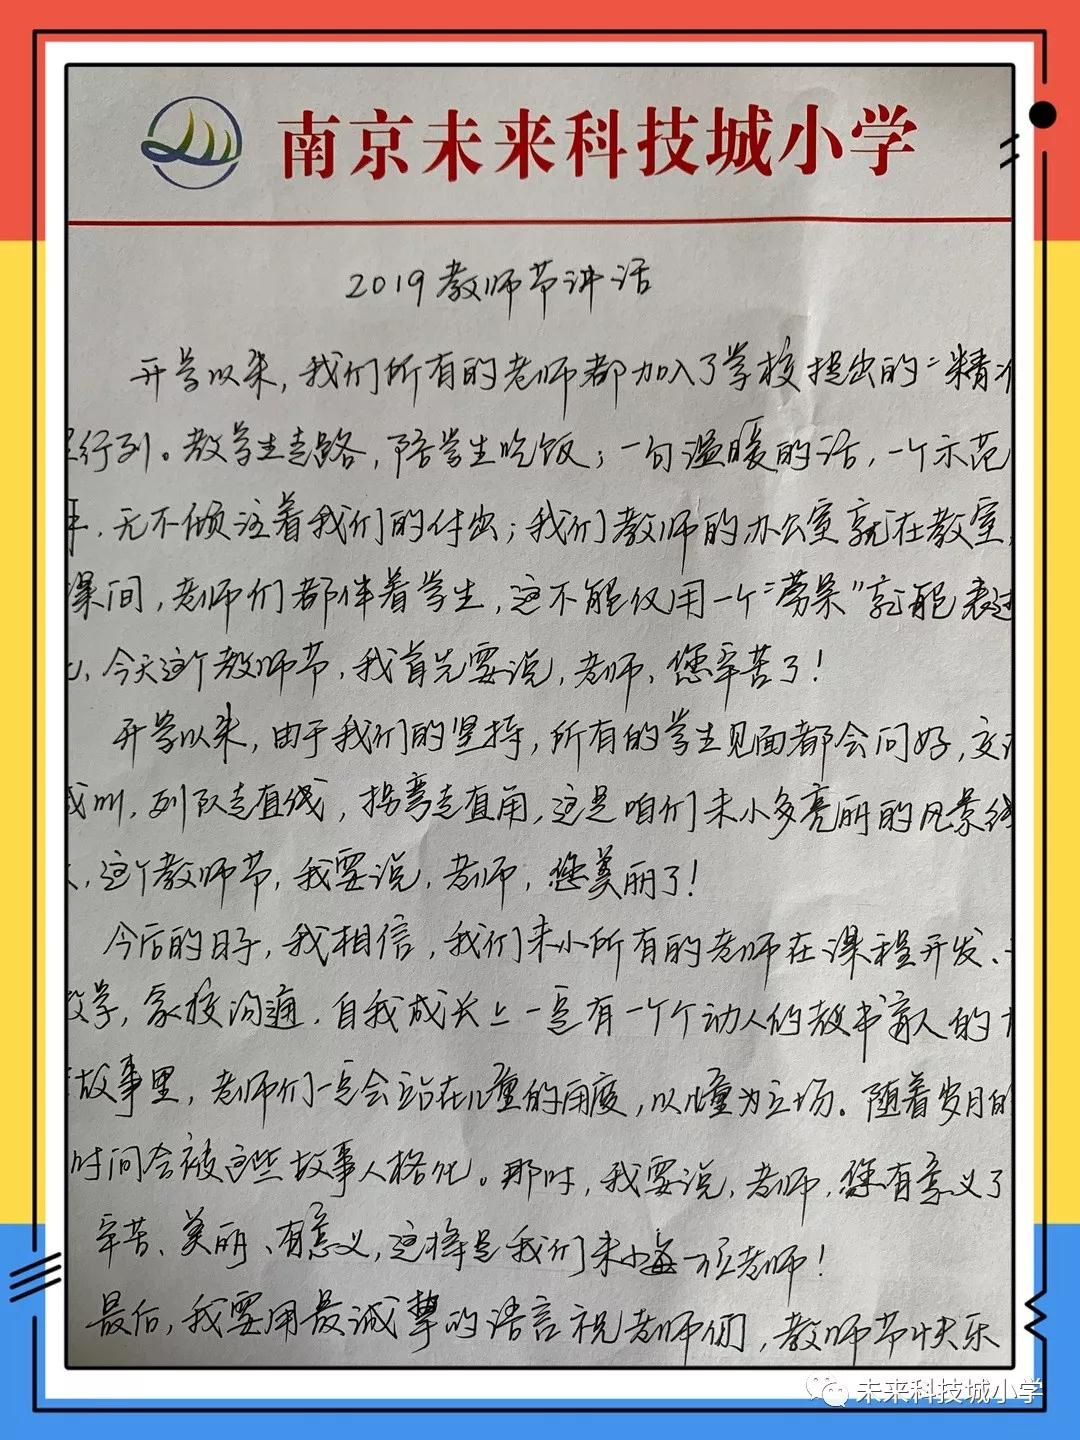 南京未来科技城小学
2019教师节讲话
开学以来，我们所有的老师都加入了学校提出的“精准
行列。教学生走路，陪学生吃饭；一句温暖的话，一个示范
，无不倾注着我们的付出；我们教师的办公室就在教室，
课间，老师们都伴着学生，这不能仅用一个“劳累”就能表达
，今天这个教师节，我首先要说，老师，您辛苦了！
开学以来，由于我们的坚持，所有的学生见面都会问好，交
叫，列队走直线，拐弯走直角，这是咱们未小多亮丽的风景线
，这个教师节，我要说，老师，您美丽了！
今后的日子，我相信，我们未小所有的老师在课程开发、
教学，家校沟通，自我成长上一定有一个个动人的教书育人的
故事里，老师们一定会站在儿童的角度，以儿童为立场。随着岁月的
时间会被这些故事人格化。那时，我要说，老师，您有意义了
辛苦、美丽、有意义，这将是我们未小每一位老师！
最后，我要用最诚挚的语言祝老师们，教师节快乐
未来科技城小学